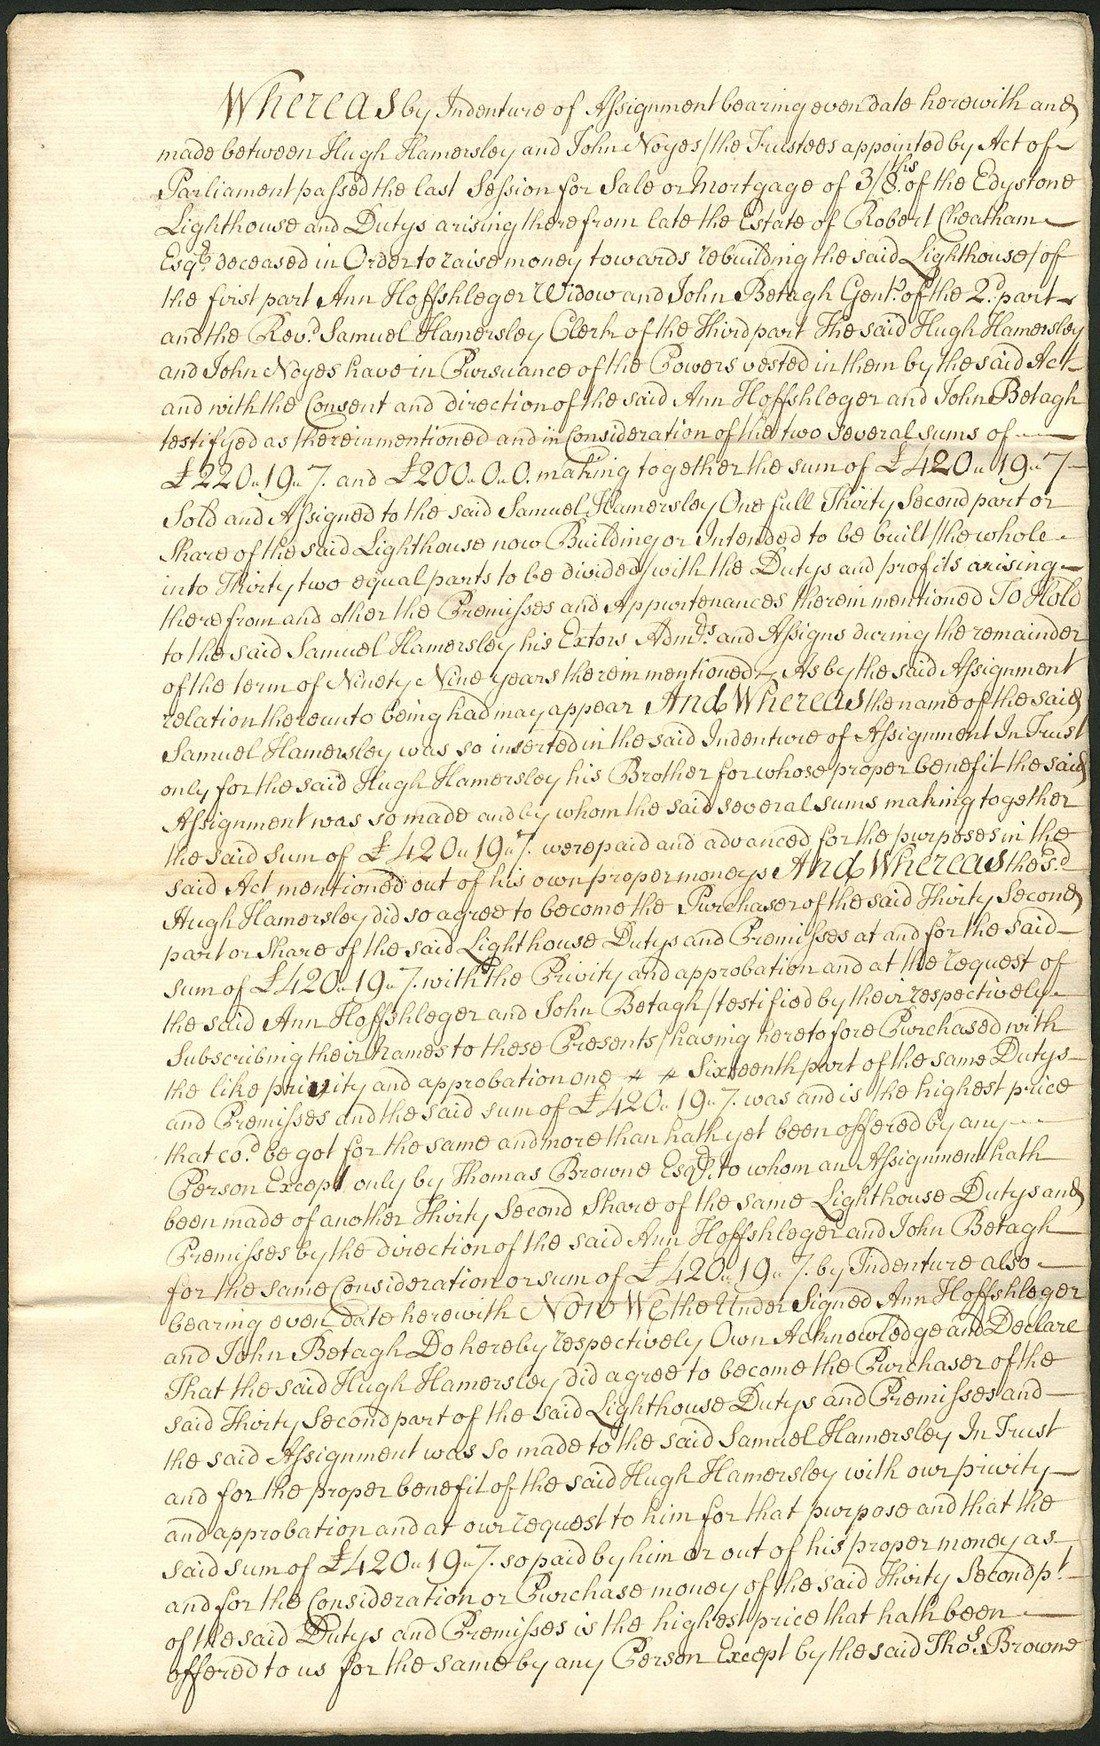 Whereas by Indenture of Assignment bearing even date herewith and
made between Hugh Hamersley and John Noyes /the Trustees appointed by Act of
Parliament passed the last Session for Sale or Mortgage of 3/8ths. of the Edystone
Lighthouse and Dutys arising therefrom late the Estate of Robert Cheatham
Esqr. deceased in Order to raise money towards rebuilding the said Lighthouse/ of
the first part Ann Hoffshleger Widow and John Betagh Gentn. of the 2d. part
and the Revd. Samuel Hamersley Clerk of the Third part The said Hugh Hamersley
and John Noyes have in Pursuance of the Powers vested in them by the said Act
and with the Consent and direction of the said Ann Hoffshleger and John Betagh
testifyed as therein mentioned and in Consideration of the two Several sums of
£220„19„7. and £200„0„0. making together the sum of £420„19„7
Sold and Assigned to the said Samuel Hamersley One full Thirty Second part or
Share of the said Lighthouse now Building or Intended to be built /the whole
into Thirty two equal parts to be divided/ with the Dutys and profits arising
therefrom and other the Premisses and Appurtenances therein mentioned To Hold
to the said Samuel Hamersley his Extors Admrs. and Assigns during the remainder
of the term of Ninety Nine years therein mentioned As by the said Assignment
relation thereunto being had may appear And Whereas the name of the said
Samuel Hamersley was so inserted in the said Indenture of Assignment In Trust
only for the said Hugh Hamersley his Brother for whose proper benefit the said
Assignment was so made and by whom the said several sums making together
the said sum of £420„19„7. were paid and advanced for the purposes in the
said Act mentioned out of his own proper moneys And Whereas the sd.
Hugh Hamersley did so agree to become the Purchaser of the said Thirty Second
part or Share of the said Lighthouse Dutys and Premisses at and for the said
sum of £420„19„7. with the Privity and approbation and at the request of
the said Ann Hoffshleger and John Betagh /testified by their respectively
Subscribing their Names to these Presents/ having heretofore Purchased with
the like privity and approbation one Sixteenth part of the same Dutys
and Premisses and the said sum of £420„19„7. was and is the highest price
that cod. be got for the same and more than hath yet been offered by any
Person Except only by Thomas Browne Esqr. to whom an Assignment hath
been made of another Thirty Second Share of the same Lighthouse Dutys and
Premisses by the direction of the said Ann Hoffshleger and John Betagh
for the same Consideration or sum of £420„19„7. by Indenture also
bearing even date herewith Now We the Under Signed Ann Hoffshleger
and John Betagh Do hereby respectively Own Acknowledge and Declare
That the said Hugh Hamersley did agree to become the Purchaser of the
said Thirty Second part of the said Lighthouse Dutys and Premisses and
the said Assignment was so made to the said Samuel Hamersley In Trust
and for the proper benefit of the said Hugh Hamersley with our privity
and approbation and at our request to him for that purpose and that the
said sum of £420„19„7. so paid by him or out of his proper money as
and for the Consideration or Purchase money of the said Thirty Second pt.
of the said Dutys and Premisses is the highest price that hath been
offered to us for the same by any Person Except by the said Thos. Browne